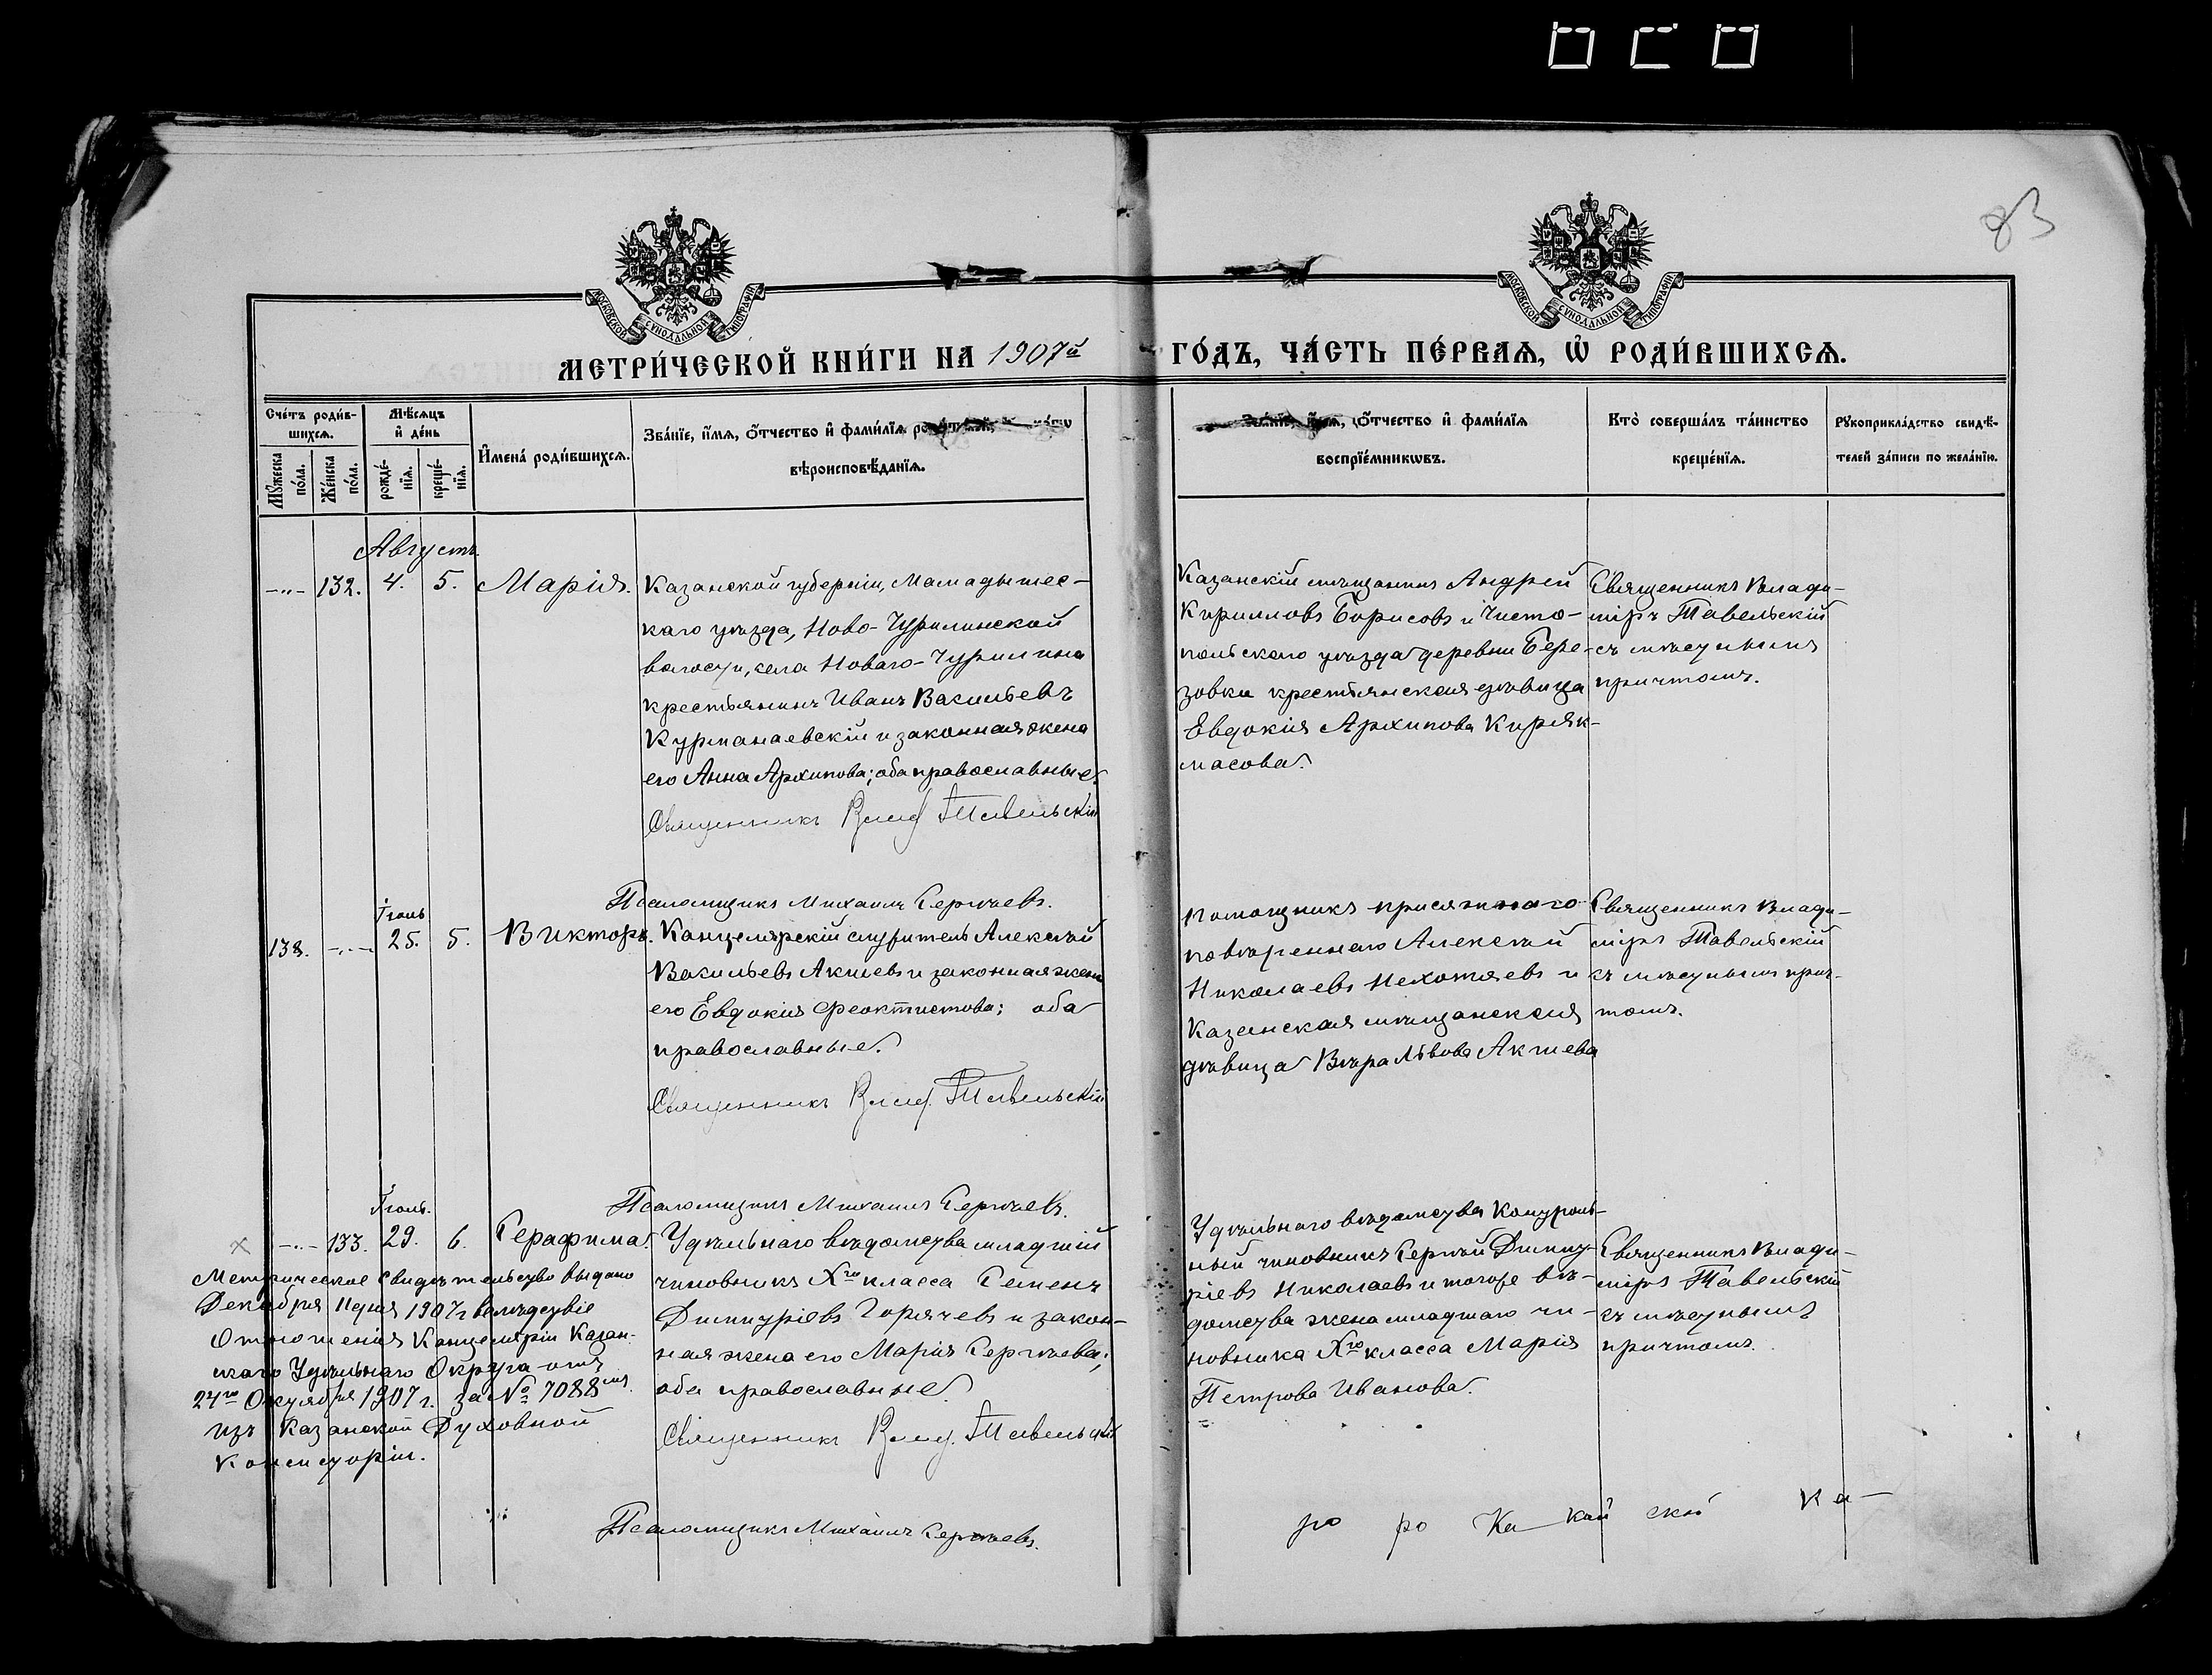 83
МОСКОВСКОЙ СѴНОДАЛЬНОЙ ТИПОГРАФІИ
МОСКОВСКОЙ СѴНОДАЛЬНОЙ ТИПОГРАФІИ
МЕТРИ́ЧЕСКОЙ КНИ́ГИ НА 1907й ГО́ДЪ, ЧА́СТЬ ПЕ́РВАѦ, Ѡ РОДИ́ВШИХСѦ.
Сче́тъ роди́в-
шихсѧ.
Мѣ́сѧцъ
и҆ де́нь
Мꙋ́жеска
по́ла.
Же́нска
по́ла.
рожде́-
нїѧ.
креще́-
нїѧ.
И҆мена̀ роди́вшихсѧ.
Зва́нїе, и҆́мѧ, ѻ҆́тчество и҆ фамі́лїѧ
вѣроисповѣ́данїѧ.
и҆́мѧ, ѻ҆́тчество и҆ фамі́лїѧ
воспрїе́мникѡвъ.
Кто̀ соверша́лъ та́инство
креще́нїѧ.
Рꙋкоприкла́дство свидѣ́-
телей за́писи по жела́нїю.
Августъ.
-"- 132. 4. 5. Марія.
Казанской губерніи, Мамадышес-
каго уѣзда, Ново-Чурилинской
волости, села Новаго-Чурилина
крестьянинъ Иванъ Васильевъ
Курманаевскій и законная жена
его Анна Архипова; оба православные.
Священникъ Влад. Тавельскій
Псаломщикъ Михаилъ Сергѣевъ.
Казанскій мѣщанинъ Андрей
Кирилловъ Борисовъ и Чисто-
польскаго уѣзда деревни Бере-
зовки крестьянская дѣвица
Евдокія Архипова Киряк-
масова.
Священникъ Влади-
міръ Тавельскій
съ мѣстнымъ
причтомъ.
Іюль
138. -"- 25. 5. Викторъ.
Канцелярскій служитель Алексѣй
Васильевъ Акшевъ и законная жена
его Евдокія Феоктистова; оба
православные.
Священникъ Влад. Тавельскій
Псаломщикъ Михаилъ Сергѣевъ.
Помощникъ присяжнаго
повѣреннаго Алексѣй
Николаевъ Нехотяевъ и
Казанская мѣщанская
дѣвица Вѣра Львова Акшева
Священникъ Влади-
міръ Тавельскій
съ мѣстнымъ прич-
томъ.
Іюль.
-"- 133. 29. 6. Серафима.
Удѣльнаго вѣдомства младшій
чиновникъ Хго класса Семенъ
Димитріевъ Горячевъ и закон-
ная жена его Марія Сергѣева;
оба православные.
Священникъ Влад. Тавельскій
Псаломщикъ Михаилъ Сергѣевъ.
Удѣльнаго вѣдомства Контроль-
ный чиновникъ Сергѣй Димит-
ріевъ Николаевъ и тогоже вѣ-
домства жена младшаго чи-
новника Хго класса Марія
Петрова Иванова.
Священникъ Влади-
міръ Тавельскій
съ мѣстнымъ
причтомъ.
Метрическое свидѣтельство выдано
Декабря 11 дня 1907г вслѣдствіе
Отношенія Канцеляріи Казан-
скаго Удѣльнаго Округа отъ
24го Октября 1907 г. за № 7088мъ.
изъ Казанской Духовной
Консисторіи.
ро ро Ка-кой ской Ка-